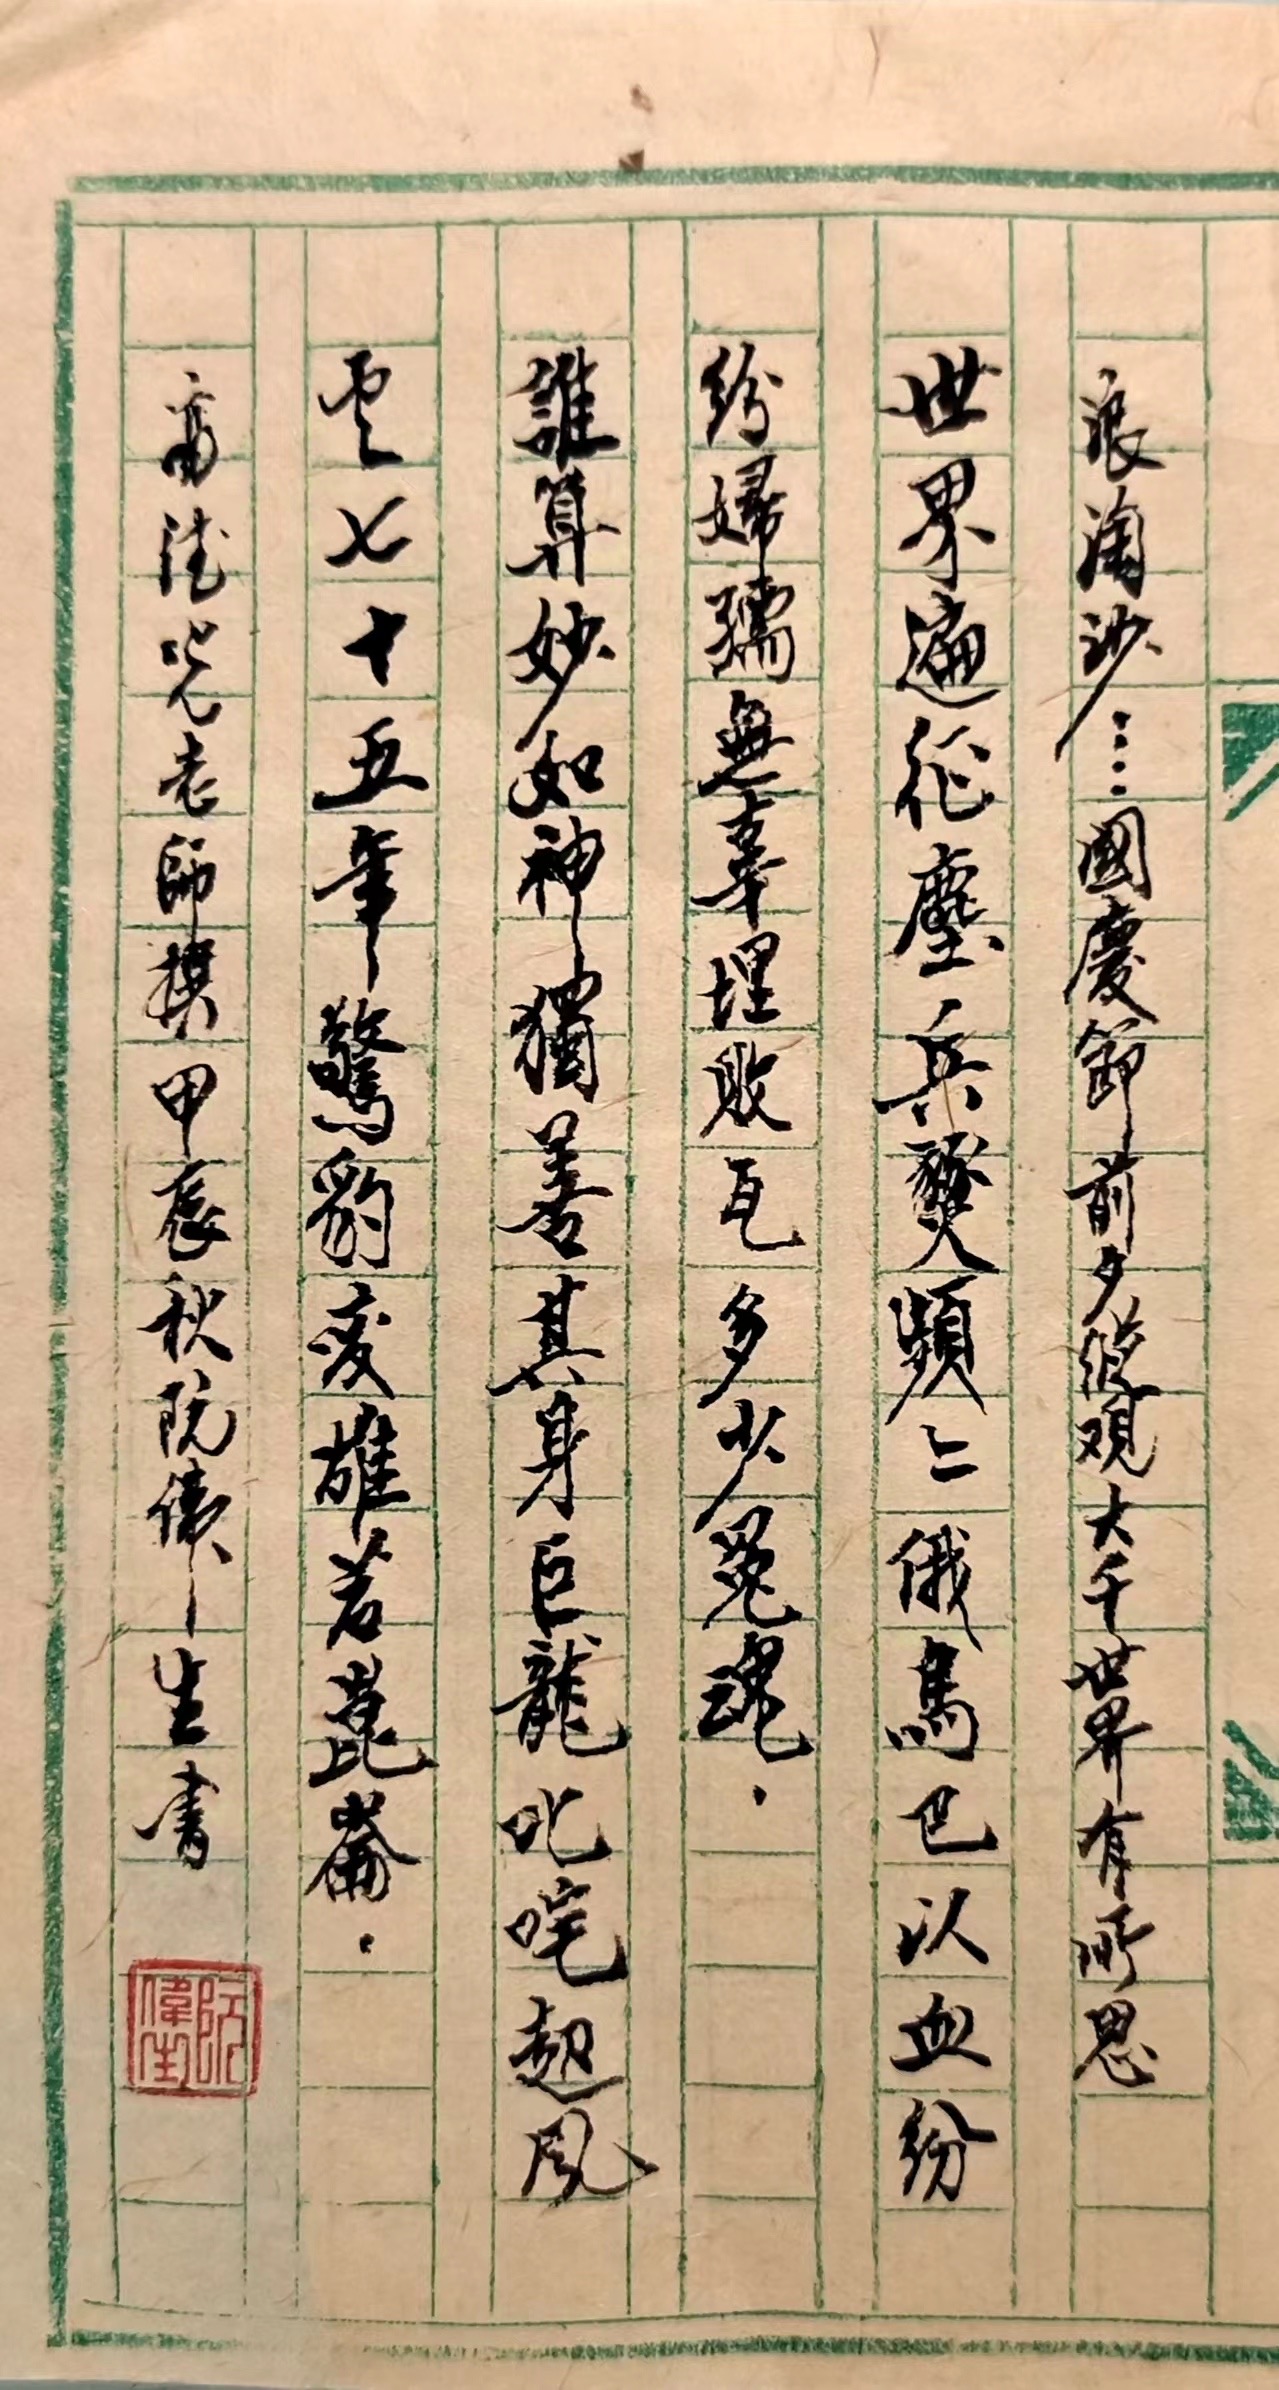 浪淘沙……國慶節前夕縱观大千世界有所思
世界遍征塵兵燹頻〻俄烏巴以血纷
纷婦孺無辜埋敗瓦多少冤魂．
誰算妙如神獨善其身巨龍叱咤起風
雲七十五年驚豹变雄若崑崙．
高德光老師撰甲辰秋阮偉生书
阮偉生